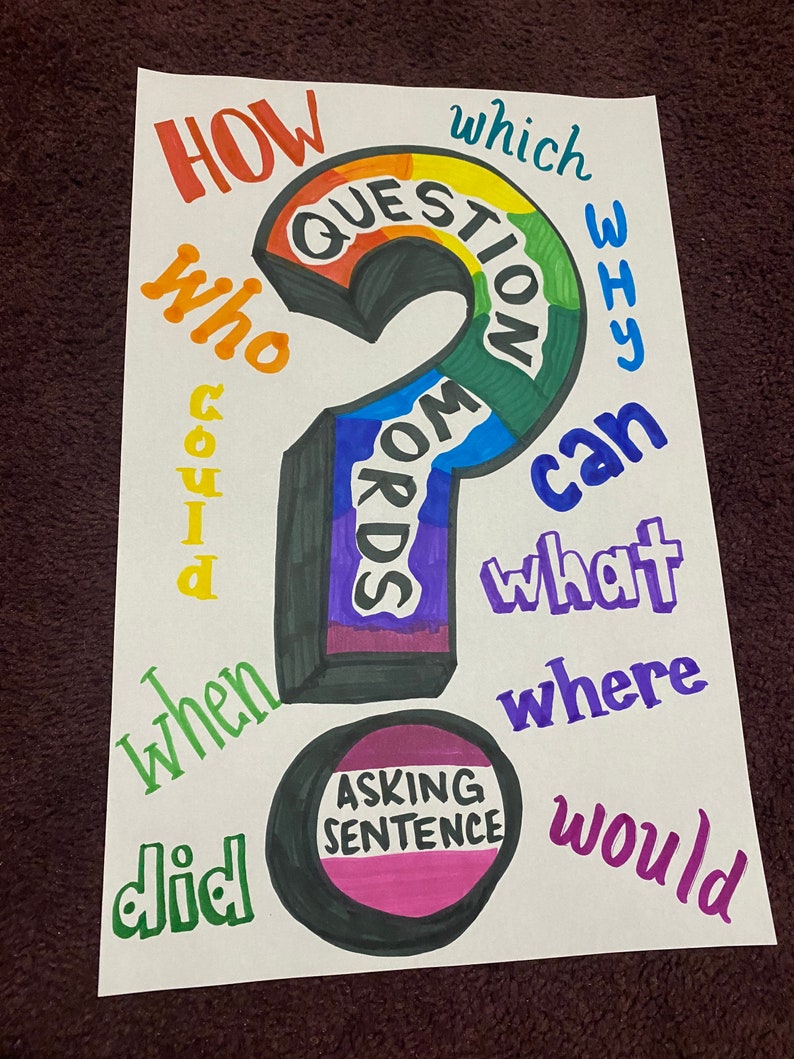 HOW
which
WHY
who
could
QUESTION
WORDS
can
what
when
where
ASKING
SENTENCE
did
would